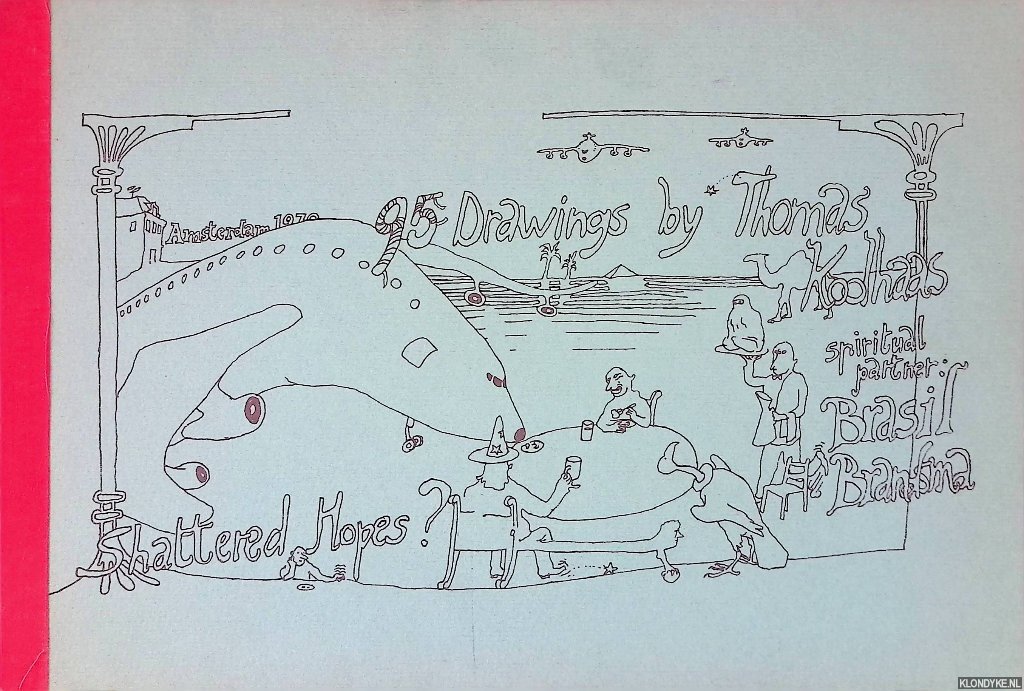 Amsterdam 1979
95 Drawings by Thomas
Koolhaas
spiritual
partner:
Brasil
Brantsma
Shattered Hopes?
KLONDYKE.NL